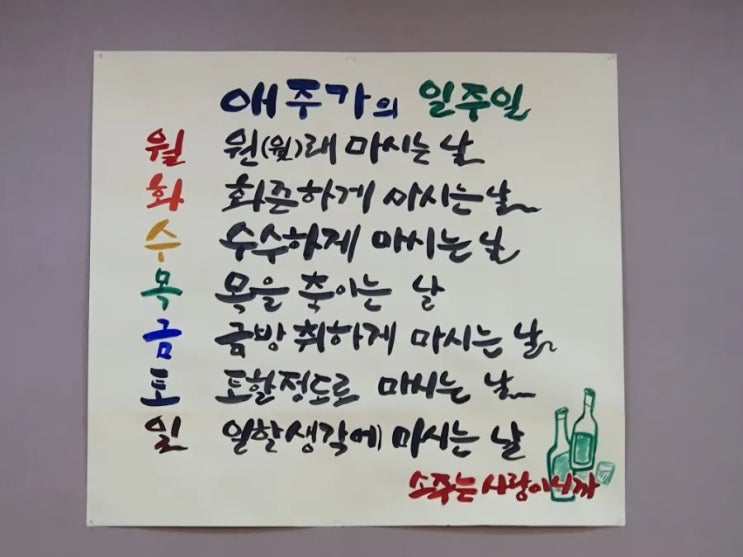 애주가의 일주일
월 원(월)래 마시는 날
화 화끈하게 마시는 날
수 수수하게 마시는 날
목 목을 축이는 날
금 금방 취하게 마시는 날
토 토할정도로 마시는 날
일 일할생각에 마시는 날
소주는 사랑이니까